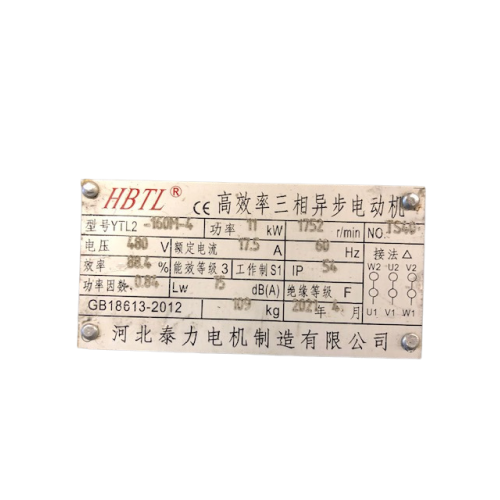 HBTL® CE 高效率三相异步电动机
型号YTL2 -160M-4 功率 11 kW 1752 r/min NO. TS40
电压 480 V 额定电流 17.5 A 60 Hz 接法△
效率 88.4 % 能效等级 3 工作制S1 IP 54 W2 U2 V2
功率因数 0.84 Lw 75 dB(A) 绝缘等级 F
GB18613-2012 109 kg 2021 年 4 月 U1 V1 W1
河北泰力电机制造有限公司